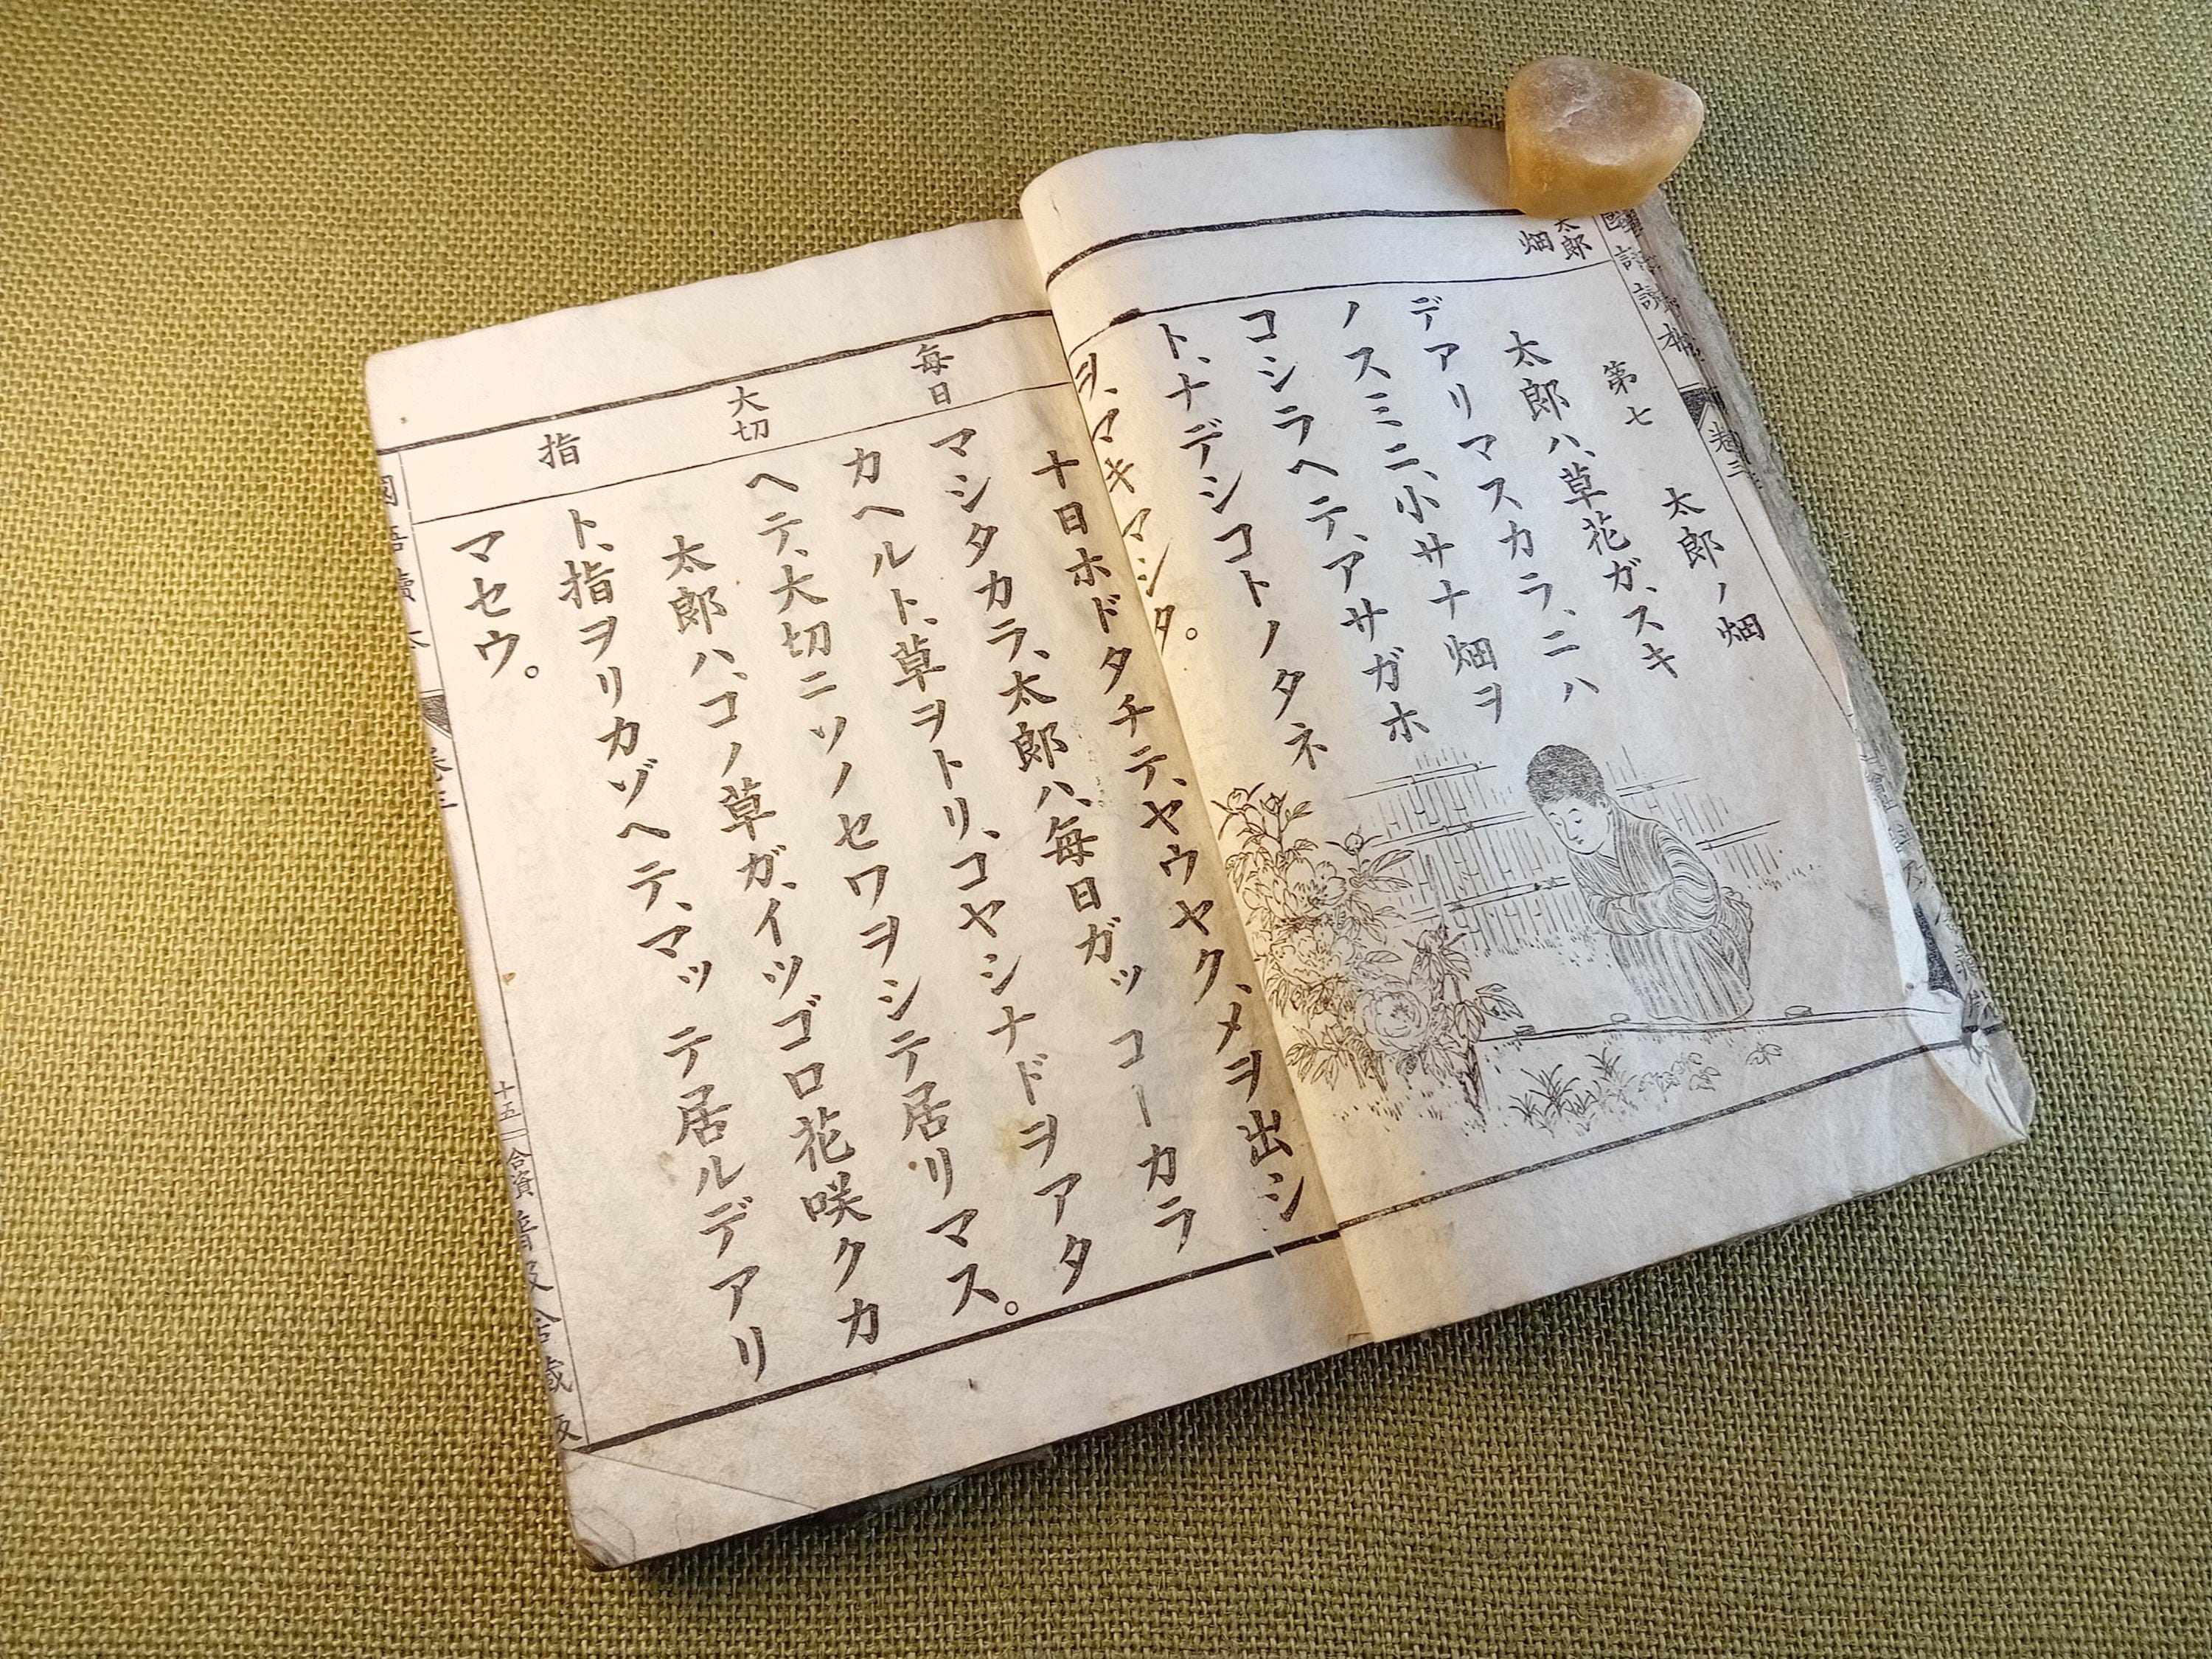 太郎
畑
第七 太郎ノ畑
太郎ハ、草花ガ、スキ
デアリマスカラ、ニハ
ノスミニ、小サナ畑ヲ
コシラヘテ、アサガホ
ト、ナデシコトノタネ
ヲ、マキマシタ。
卷三
毎日
大切
指
十日ホドタチテ、ヤウヤク、メヲ出シ
マシタカラ、太郎ハ、毎日ガッコーカラ
カヘルト、草ヲトリ、コヤシナドヲアタ
ヘテ、大切ニソノセワヲシテ居リマス。
太郎ハ、コノ草ガ、イツゴロ花咲クカ
ト、指ヲリカゾヘテ、マッテ居ルデアリ
マセウ。
十五
合資